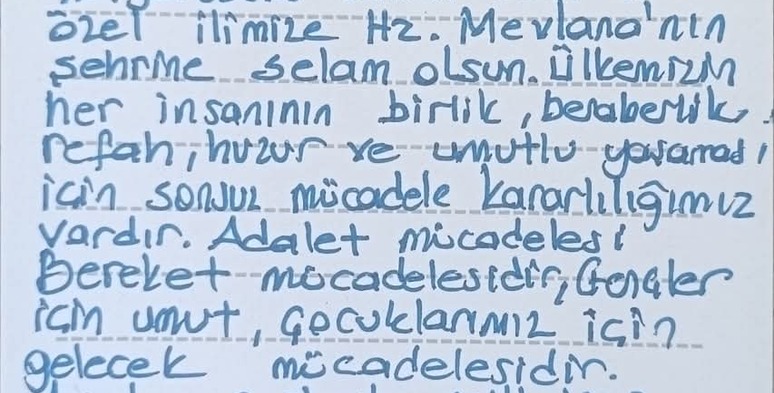 özel ilimize Hz. Mevlana'nın
şehrine selam olsun. Ülkemizin
her insanının birlik, beraberlik,
refah, huzur ve umutlu yaşaması
için sonsuz mücadele kararlılığımız
vardır. Adalet mücadelesi
Bereket mücadelesidir, Gençler
için umut, çocuklarımız için
gelecek mücadelesidir.